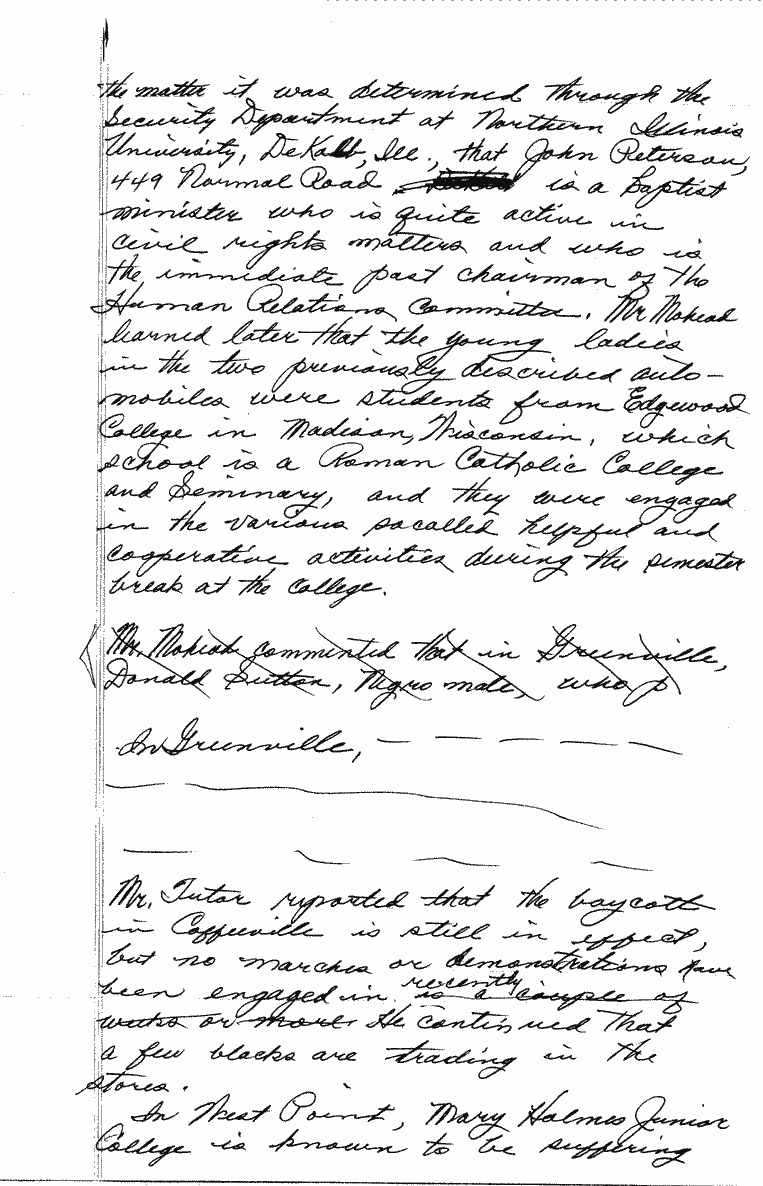 the matter it was determined through the
Security Department at Northern Illinois
University, DeKalb, Ill., that John Peterson,
449 Normal Road is a Baptist
minister who is quite active in
civil rights matters and who is
the immediate past chairman of the
Human Relations Committee. Mr Mohead
learned later that the young ladies
in the two previously described auto-
mobiles were students from Edgewood
College in Madison, Wisconsin, which
school is a Roman Catholic College
and Seminary, and they were engaged
in the various socalled helpful and
cooperative activities during the semester
break at the college.
Mr. Mohead commented that in Greenville,
Donald Sutton, Negro male, who
In Greenville,
Mr. Tutor reported that the boycott
in Coffeeville is still in effect,
but no marches or demonstrations have
been engaged in recently is a couple of
weeks or more. He continued that
a few blacks are trading in the
stores.
In West Point, Mary Holmes Junior
College is known to be suffering